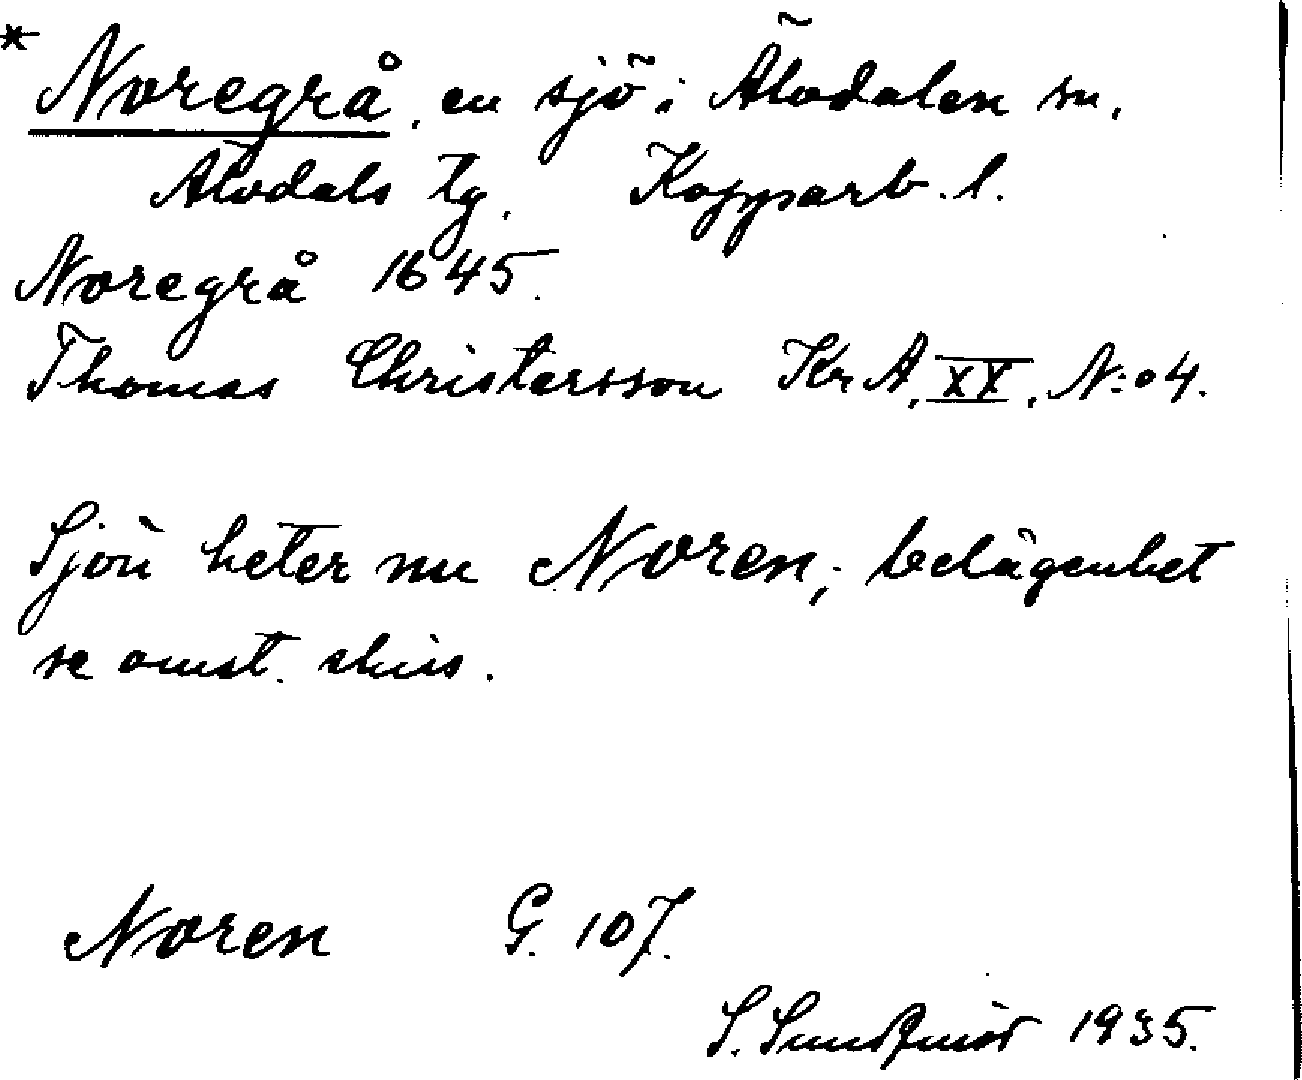 * Noregrå, en sjö i Älvdalen sn.
Älvdals tg. Kopparb. l.
Noregrå 1645.
Thomas Christersson Kr A, XX, N:o 4.
Sjön heter nu Noren; belägenhet
se omst. skiss.
Noren G. 107.
S. Sundqvist 1935.